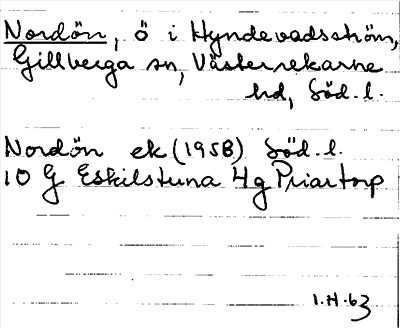 Nordön, ö i Hyndevadsström,
Gillberga sn, Västerrekarne
hd, Söd. l.
Nordön ek (1958) Söd. l.
10 G Eskilstuna 4 g Priartorp
1.H.63